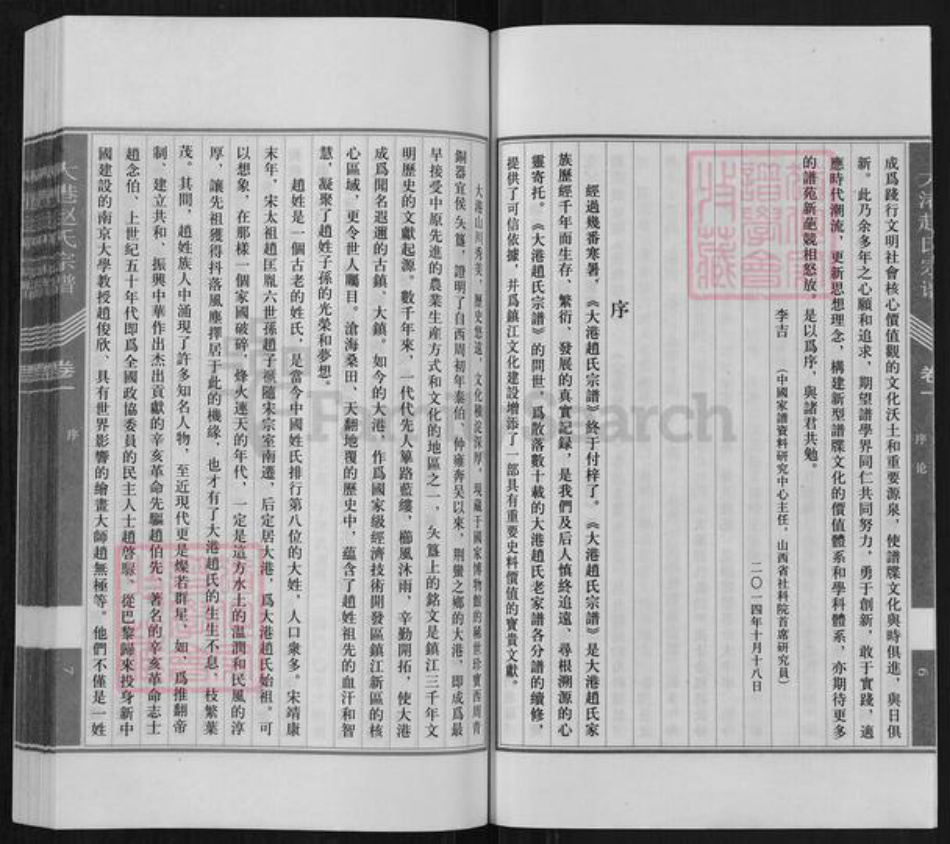 成爲踐行文明社會核心價值觀的文化沃土和重要源泉，使譜牒文化與時俱進，與日俱
新。此乃余多年之心願和追求，期望譜學界同仁共同努力，勇于創新，敢于實踐，適
應時代潮流，更新思想理念，構建新型譜牒文化的價值體系和學科體系，亦期待更多
的譜苑新葩競相怒放。是以爲序，與諸君共勉。
李吉　（中國家譜資料研究中心主任，山西省社科院首席研究員）
二〇一四年十月十八日
序
經過幾番寒暑，《大港趙氏宗譜》終于付梓了。《大港趙氏宗譜》是大港趙氏家
族歷經千年而生存、繁衍、發展的真實記録，是我們及后人慎終追遠、尋根溯源的心
靈寄托。《大港趙氏宗譜》的問世，爲散落數十載的大港趙氏老家譜各分譜的續修，
提供了可信依據，并爲鎮江文化建設增添了一部具有重要史料價值的寶貴文獻。
卷一
序論
6
大港山川秀美，歷史悠遠，文化積淀深厚。現藏于國家博物館的稀世珍寶西周青
銅器宜侯夨簋，證明了自西周初年泰伯、仲雍奔吴以來，荆蠻之鄉的大港，即成爲最
早接受中原先進的農業生産方式和文化的地區之一，夨簋上的銘文是鎮江三千年文
明歷史的文獻起源。數千年來，一代代先人篳路藍縷，櫛風沐雨，辛勤開拓，使大港
成爲聞名遐邇的古鎮、大鎮。如今的大港，作爲國家級經濟技術開發區鎮江新區的核
心區域，更令世人矚目。滄海桑田，天翻地覆的歷史中，蕴含了趙姓祖先的血汗和智
慧，凝聚了趙姓子孫的光榮和夢想。
趙姓是一個古老的姓氏，是當今中國姓氏排行第八位的大姓，人口衆多。宋靖康
末年，宋太祖趙匡胤六世孫趙子禠隨宋宗室南遷，后定居大港，爲大港趙氏始祖。可
以想象，在那樣一個家國破碎，烽火連天的年代，一定是這方水土的温潤和民風的淳
厚，讓先祖獲得抖落風塵擇居于此的機緣，也才有了大港趙氏的生生不息，枝繁葉
茂。其間，趙姓族人中涌現了許多知名人物，至近現代更是燦若群星，如，爲推翻帝
制、建立共和、振興中華作出杰出貢獻的辛亥革命先驅趙伯先、著名的辛亥革命志士
趙念伯、上世紀五十年代即爲全國政協委員的民主人士趙啓騄、從巴黎歸來投身新中
國建設的南京大學教授趙俊欣、具有世界影響的繪畫大師趙無極等。他們不僅是一姓
大港赵氏宗譜
卷一
序
7